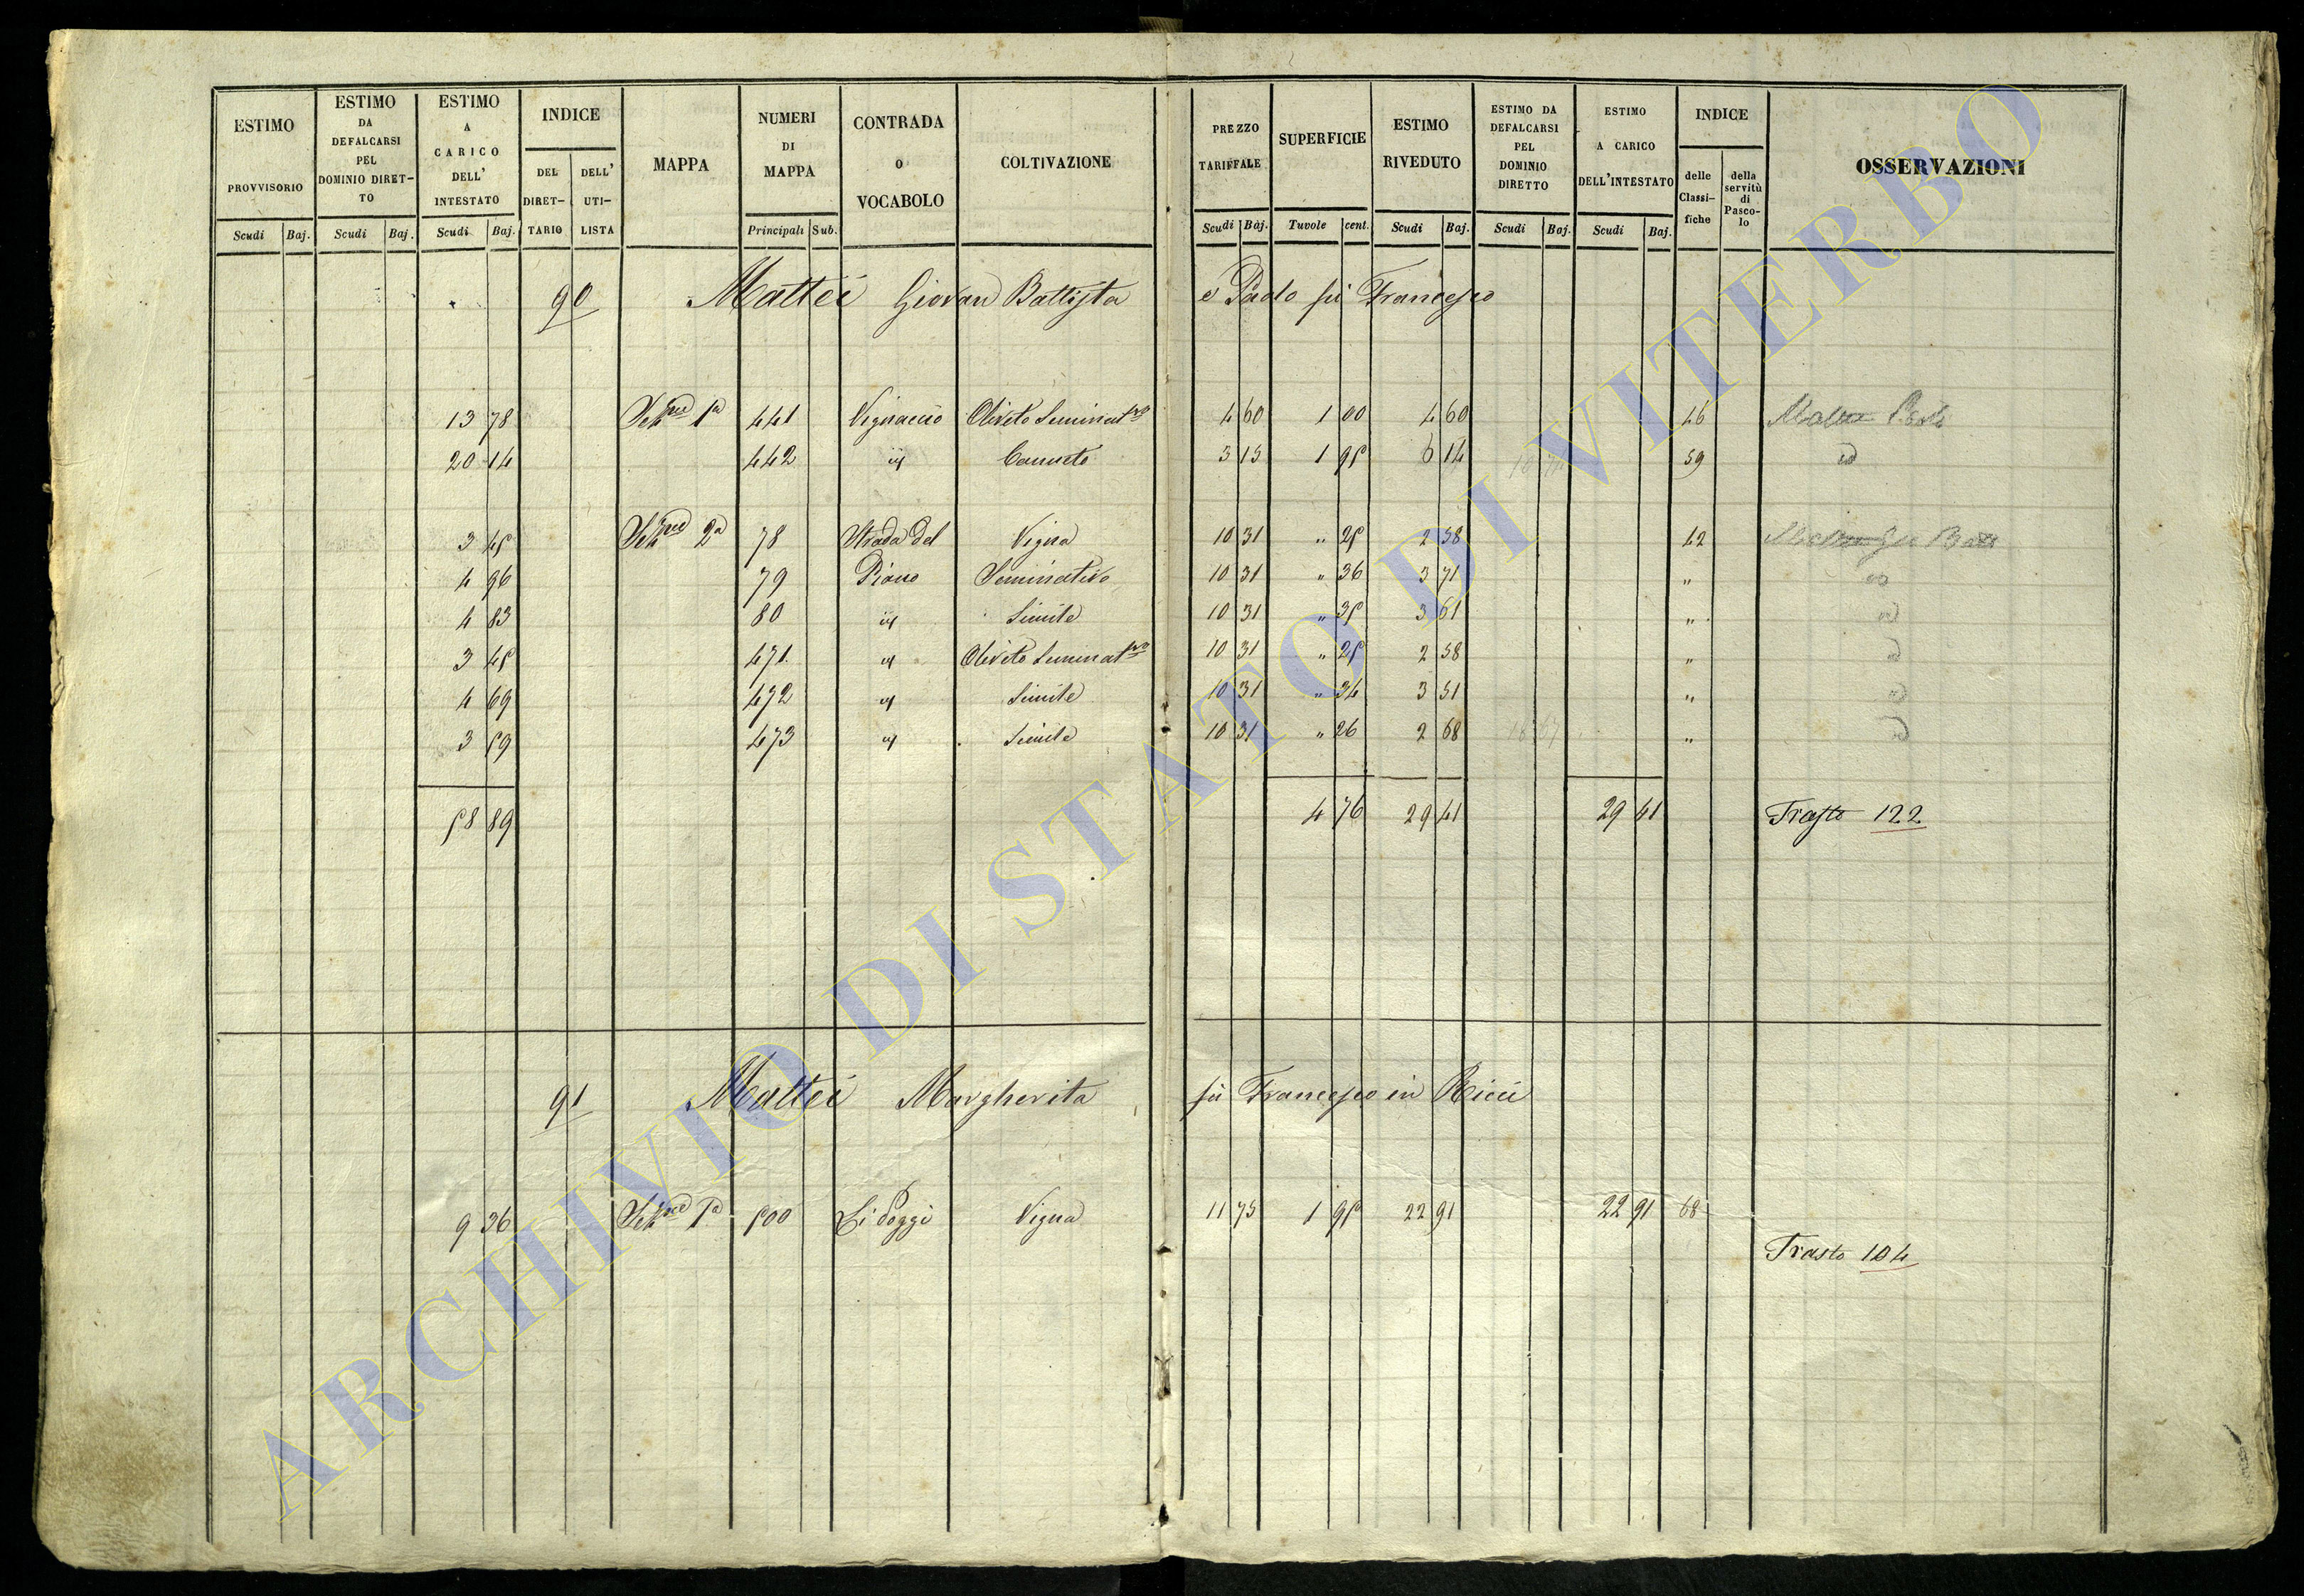 ESTIMO PROVVISORIO | ESTIMO DA DEFALCARSI PEL DOMINIO DIRETTO | ESTIMO A CARICO DELL' INTESTATO | INDICE | MAPPA | NUMERI DI MAPPA | CONTRADA O VOCABOLO | COLTIVAZIONE | PREZZO TARIFFALE | SUPERFICIE | ESTIMO RIVEDUTO | ESTIMO DA DEFALCARSI PEL DOMINIO DIRETTO | ESTIMO A CARICO DELL'INTESTATO | INDICE | OSSERVAZIONI
DEL DIRET-TARIO | DELL' UTI-LISTA | delle Classi-fiche | della servitù di Pasco-lo
Scudi | Baj. | Scudi | Baj. | Scudi | Baj. | Principali | Sub. | Scudi | Baj. | Tavole | cent. | Scudi | Baj. | Scudi | Baj. | Scudi | Baj.
90 Mattei Giovan Battista e Paolo fù Francesco
13 78 | 1a | 441 | Vignaccio | Oliveto Seminatvo | 4 60 | 1 00 | 4 60 | 46
20 14 | 442 | Canneto | 3 15 | 1 95 | 6 14 | 59 | id
3 45 | 2a | 78 | Strada del | Vigna | 10 31 | " 25 | 2 58 | 42
4 96 | 79 | Piano | Seminativo | 10 31 | " 36 | 3 71 | " | id
4 83 | 80 | Simile | 10 31 | " 35 | 3 61 | " | id
3 45 | 471 | Oliveto Seminatvo | 10 31 | " 25 | 2 58 | " | id
4 69 | 472 | Simile | 10 31 | " 34 | 3 51 | " | id
3 59 | 473 | Simile | 10 31 | " 26 | 2 68 | " | id
58 89 | 4 76 | 29 41 | 29 41 | Trasto 122
91 Mattei Margherita fù Francesco in Ricci
9 36 | 1a | 500 | Li Poggi | Vigna | 11 75 | 1 95 | 22 91 | 22 91 | 68
Trasto 104
ARCHIVIO DI STATO DI VITERBO